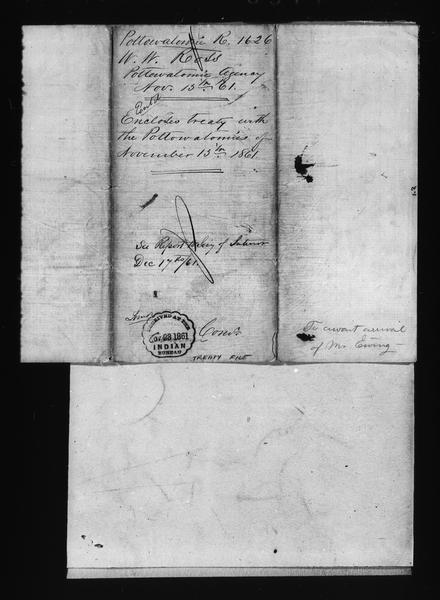 Pottowatomie R. 1626
W. W. Ross
Pottowatomie Agency
Nov. 15th 61.
Encloses treaty with
the Pottowatomies of
November 15th 1861
See Report to Secy of Interior
Dec 17th/61.
RECEIVED AT THE
NOV 23 1861
INDIAN
BUREAU
TREATY FILE
To await arrival
of Mr Ewing